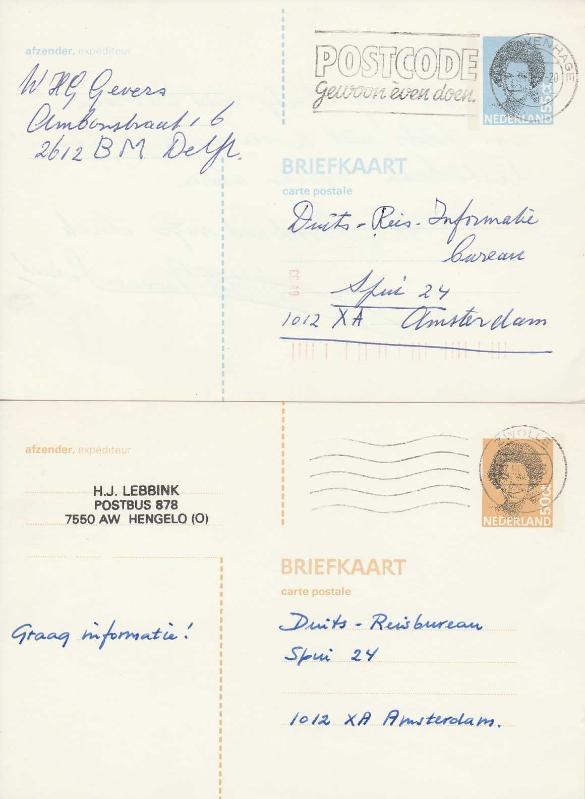 afzender, expéditeur
W H G Gevers
Ambonstraat 16
2612 BM Delft.
POSTCODE
Gewoon even doen.
55c
NEDERLAND
BRIEFKAART
carte postale
Duits - Reis - Informatie
bureau
Spui 24
1012 XA Amsterdam
afzender, expéditeur
H.J. LEBBINK
POSTBUS 878
7550 AW HENGELO (O)
ZWOLLE
50c
NEDERLAND
BRIEFKAART
carte postale
Graag informatie!
Duits - Reisbureau
Spui 24
1012 XA Amsterdam.